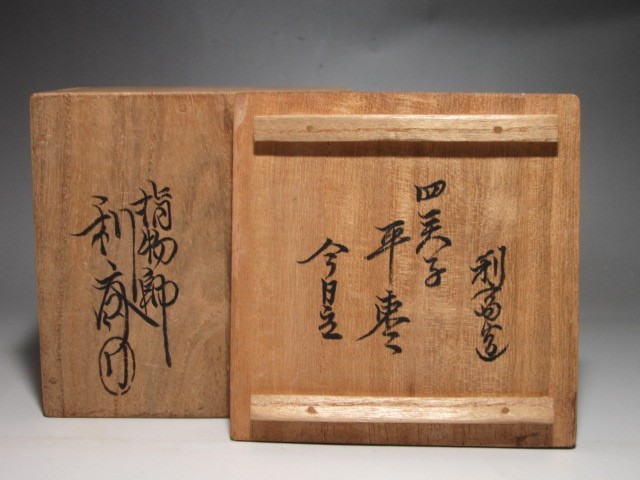 利斎造
四君子
平棗
今日庵
指物師
利斎